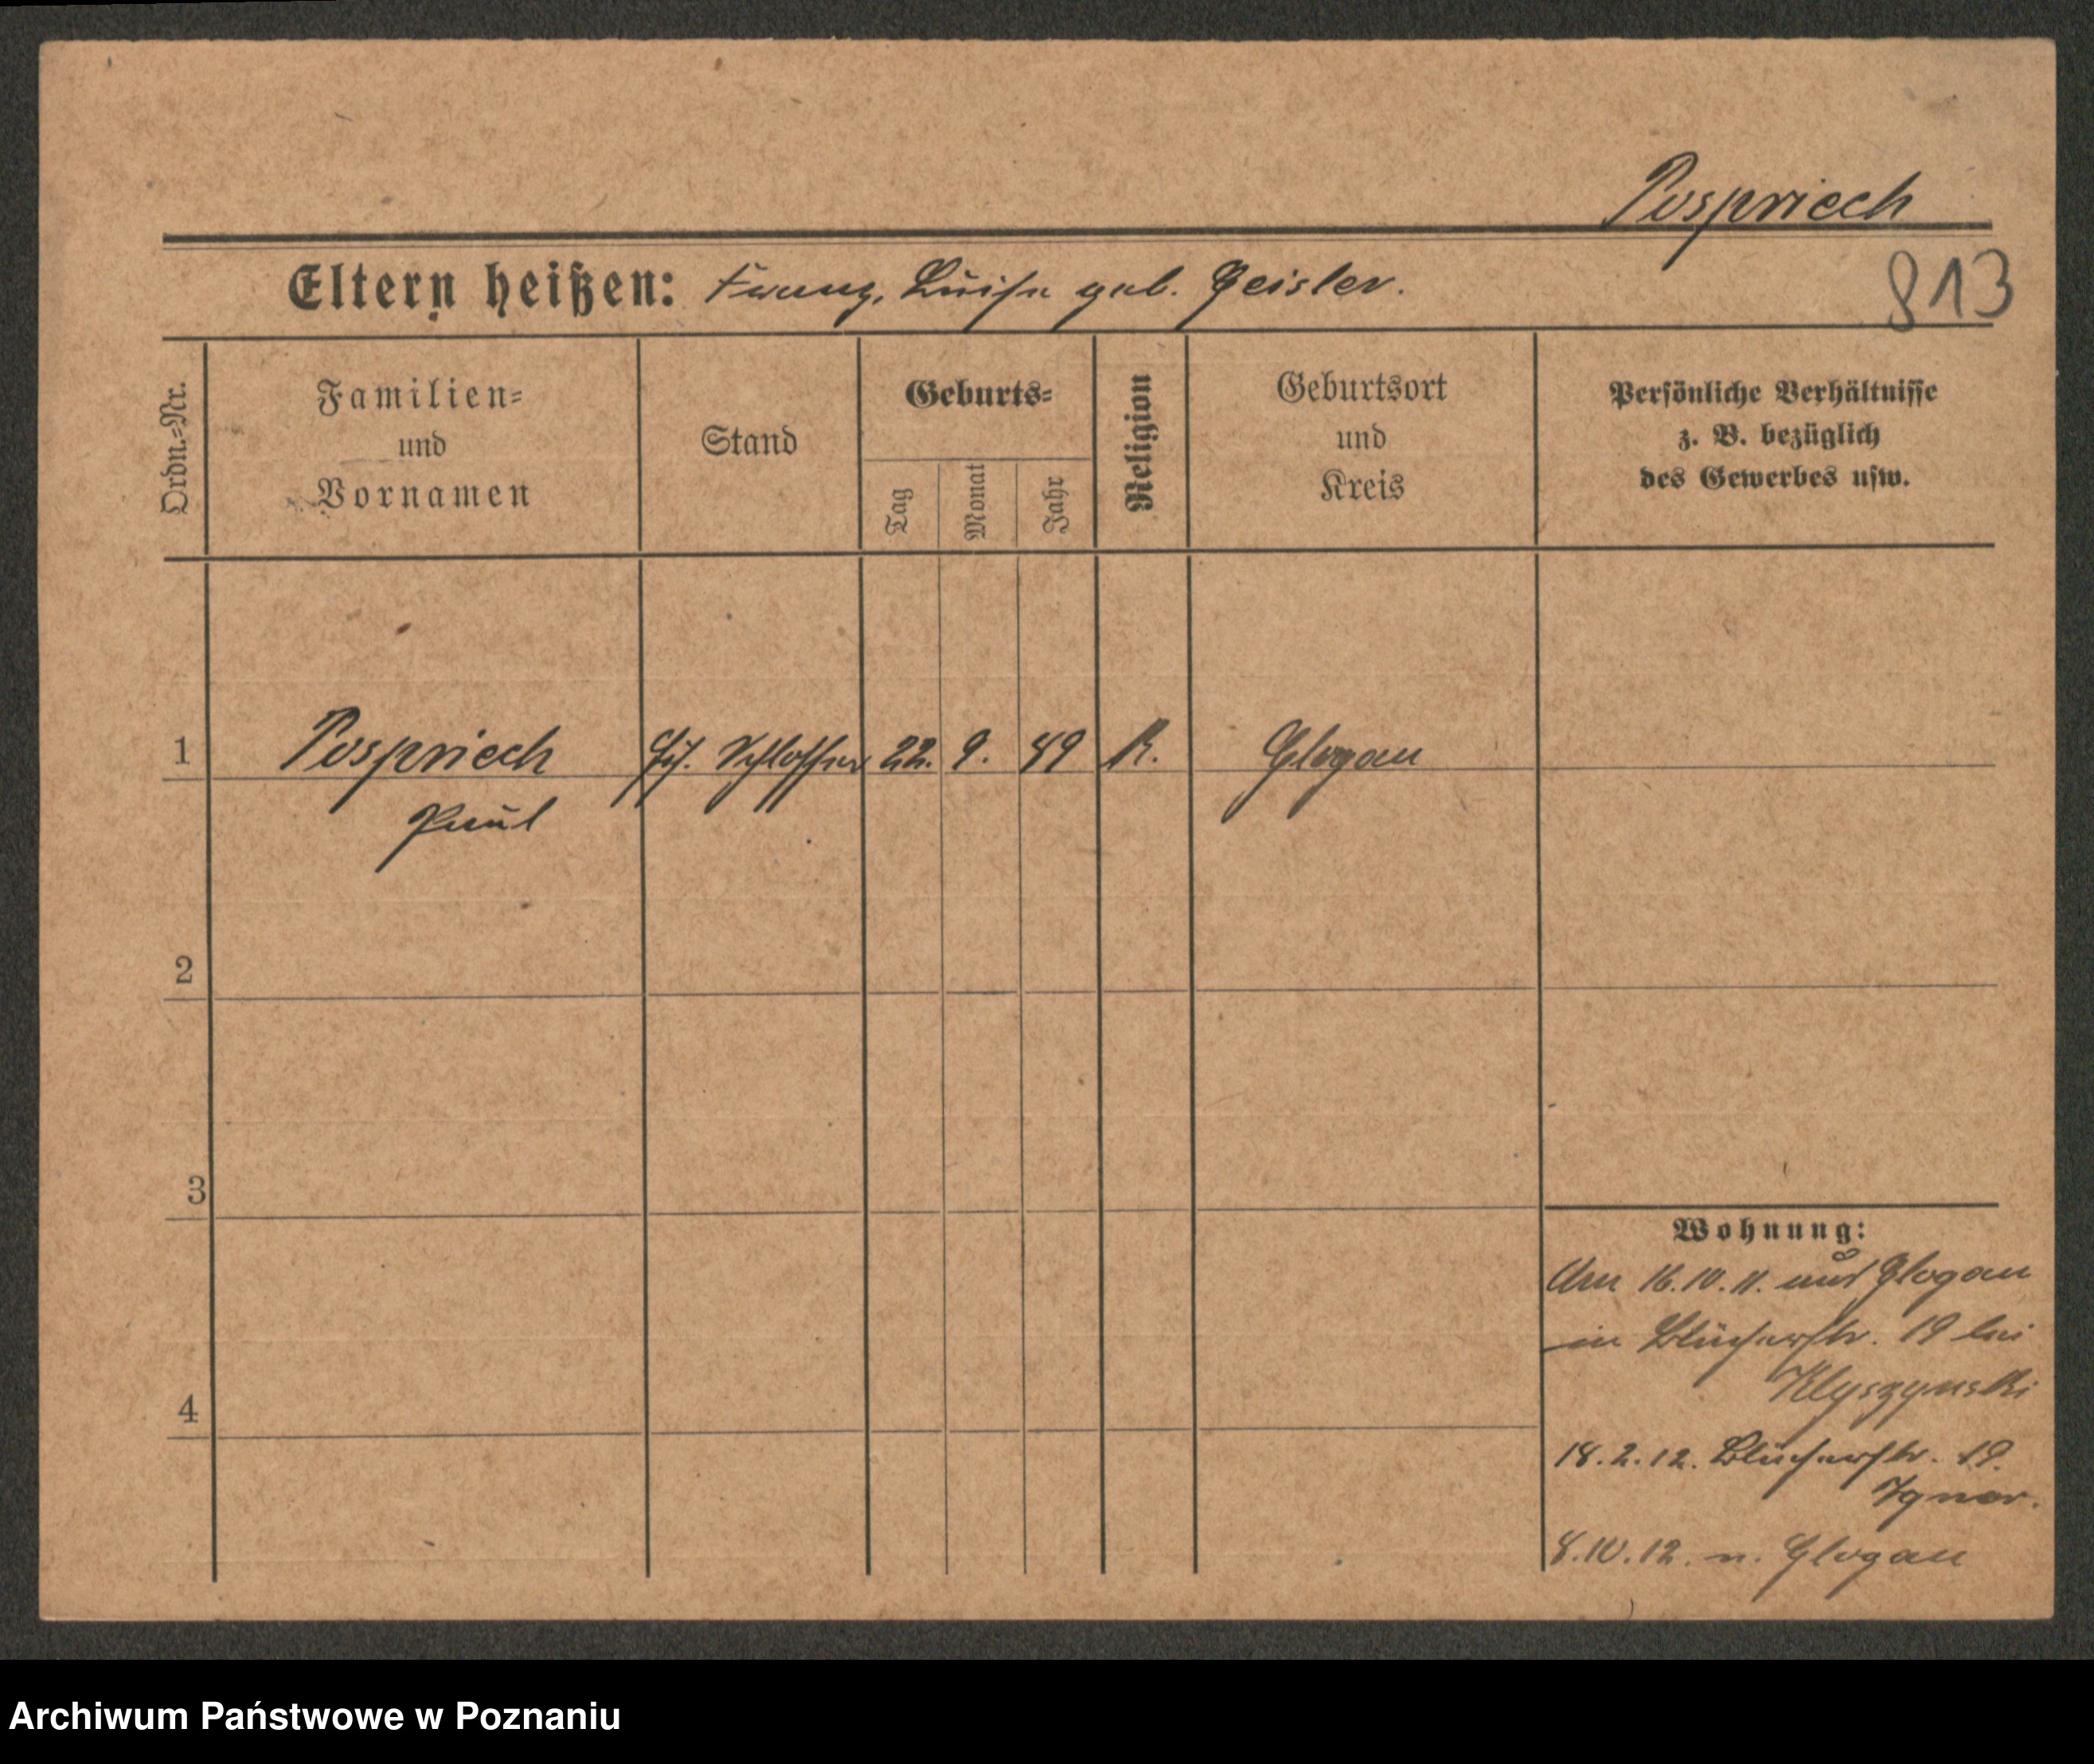 Pospriech
Eltern heißen: Franz, Luise geb. Geisler.
813
Ordn.=Nr.
Familien=
und
Vornamen
Stand
Geburts=
Tag
Monat
Jahr
Religion
Geburtsort
und
Kreis
Persönliche Verhältnisse
z. B. bezüglich
des Gewerbes usw.
1 Pospriech Schlosser 22. 9. 89 K. Glogau
Paul
2
3
4
Wohnung:
Am 16.10.11. aus Glogau
in Blücherstr. 19 bei
Klyszynski
18.2.12. Blücherstr. 19.
8.10.12. n. Glogau
Archiwum Państwowe w Poznaniu